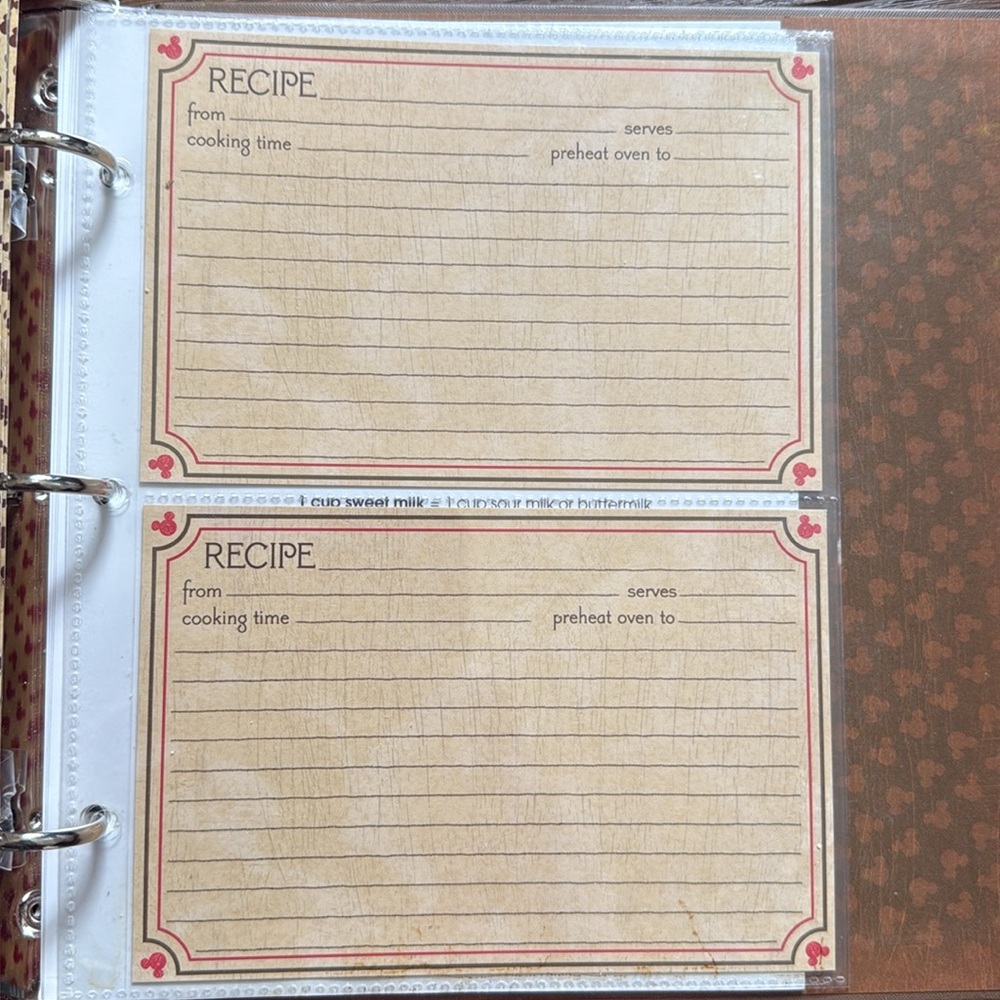 RECIPE
from serves
cooking time preheat oven to
1 cup sweet milk = 1 cup sour milk or buttermilk
RECIPE
from serves
cooking time preheat oven to